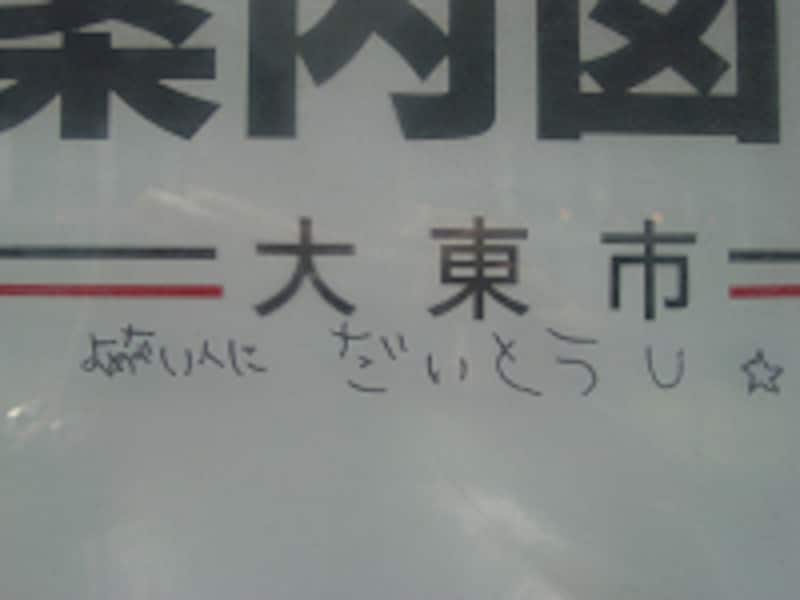 案内図
大東市
よめない人に だいとうし☆